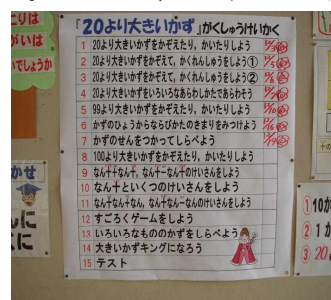 『20より大きいかず』がくしゅうけいかく
1 20より大きいかずをかぞえたり、かいたりしよう
2 20より大きいかずをかぞえて、かくれんしゅうをしよう①
3 20より大きいかずをかぞえて、かくれんしゅうをしよう②
4 20より大きいかずをいろいろなあらわしかたであらわそう
5 99より大きいかずをかぞえたり、かいたりしよう
6 かずのひょうからならびかたのきまりをみつけよう
7 かずのせんをつかってしらべよう
8 100より大きいかずをかぞえたり、かいたりしよう
9 なん十+なん十、なん十-なん十のけいさんをしよう
10 なん十といくつのけいさんをしよう
11 なん十なん+なん、なん十なん-なんのけいさんをしよう
12 すごろくゲームをしよう
13 いろいろなもののかずをしらべよう
14 大きいかずキングになろう
15 テスト
こりは
がいは
いでしょうか
かせ
んに
くに
① 10が
② 1が
③ 20